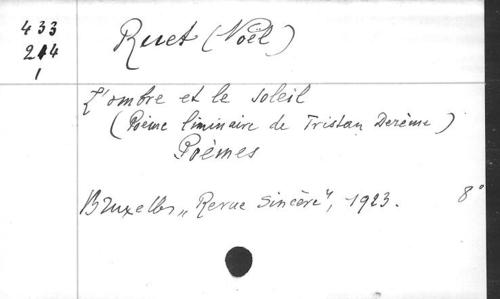 433
214
1
Ruet (Noël)
L'ombre et le soleil
(Poème liminaire de Tristan Derème)
Poèmes
Bruxelles, „Revue Sincère", 1923. 8°